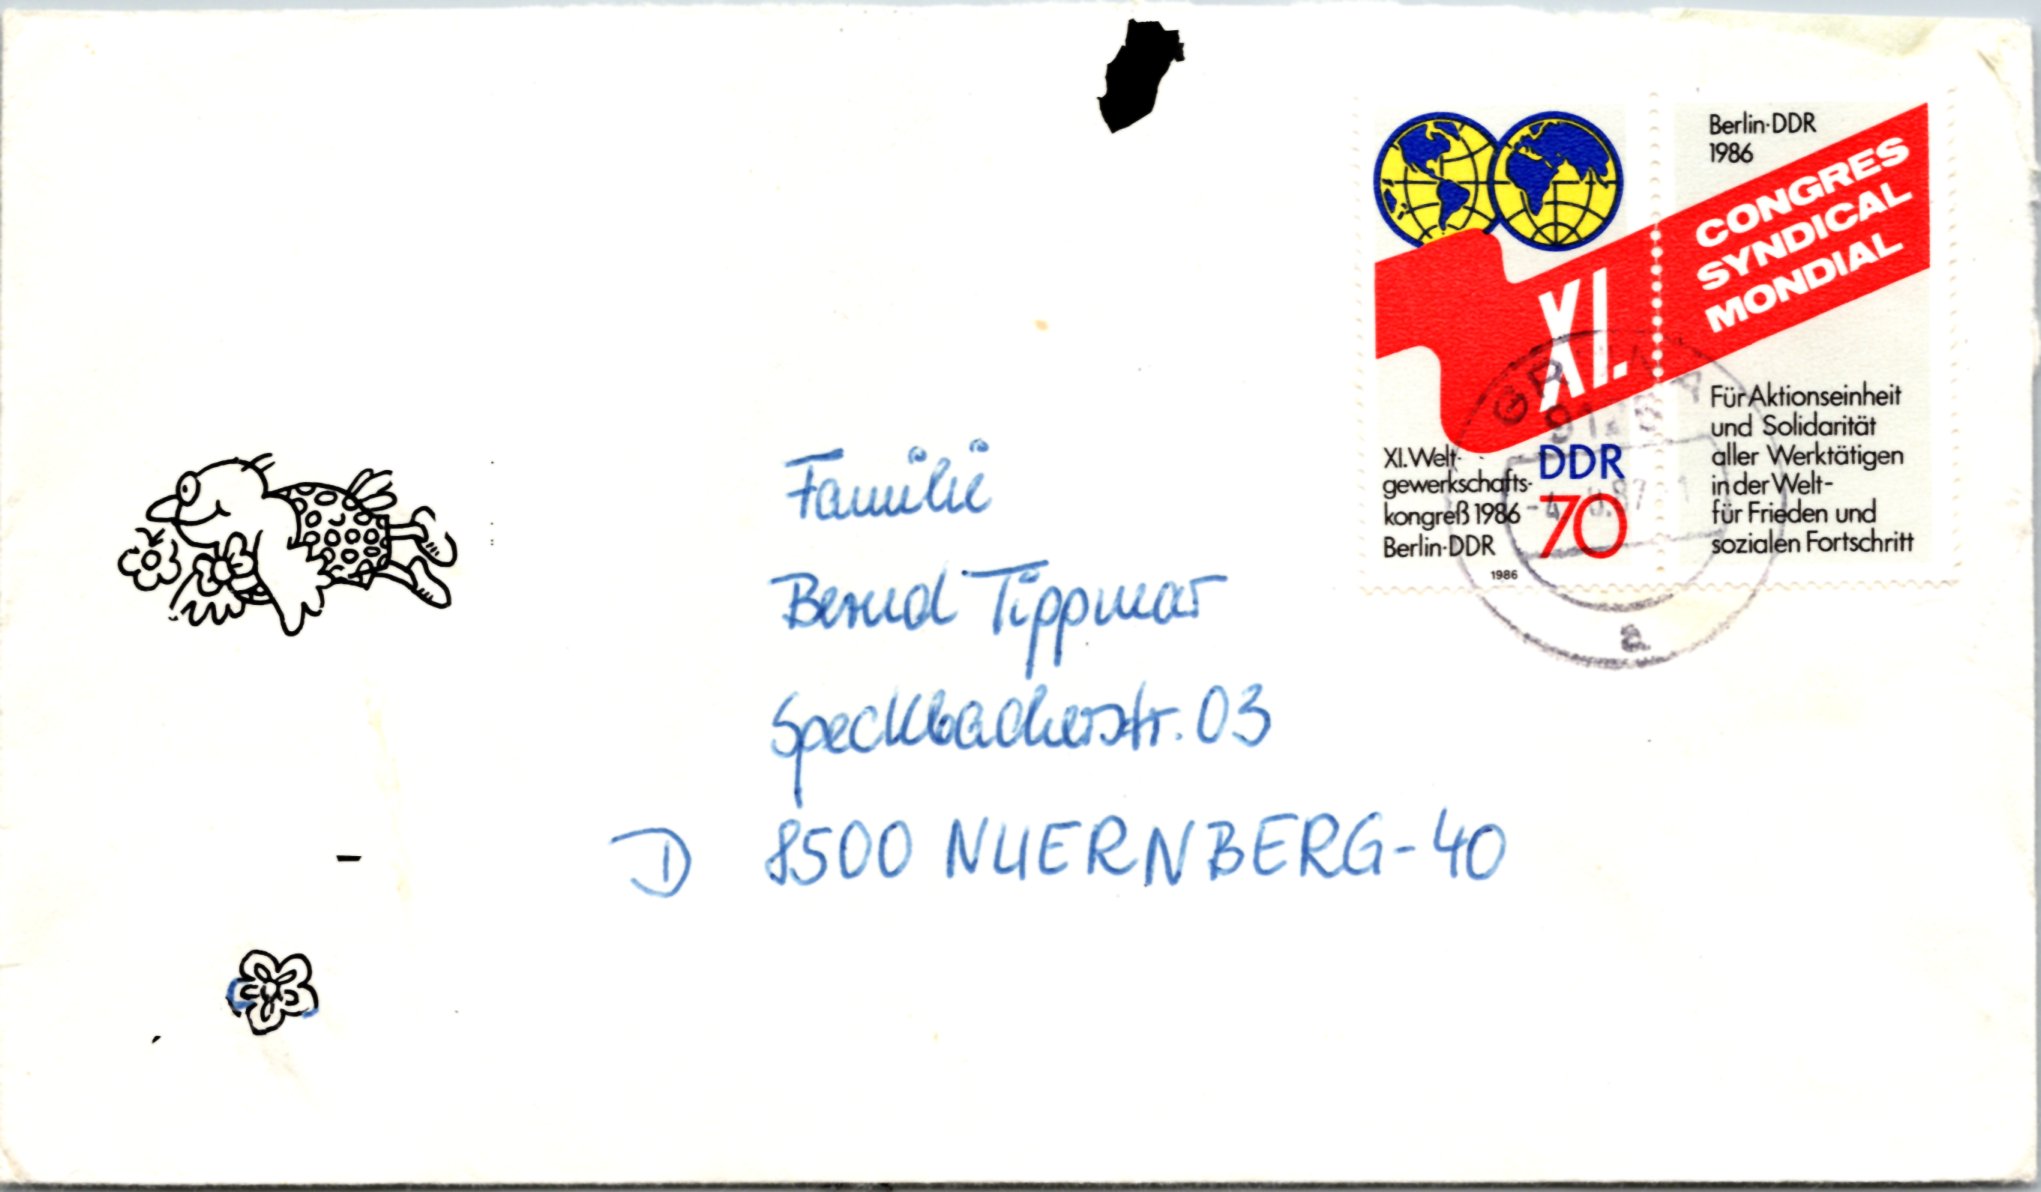 Berlin·DDR
1986
CONGRES
SYNDICAL
MONDIAL
XI.
Für Aktionseinheit
und Solidarität
aller Werktätigen
in der Welt-
für Frieden und
sozialen Fortschritt
XI. Welt-
gewerkschafts-
kongreß 1986
Berlin·DDR
DDR
70
1986
a
Familie
Bernd Tippmar
Speckbacherstr. 03
D 8500 NUERNBERG-40